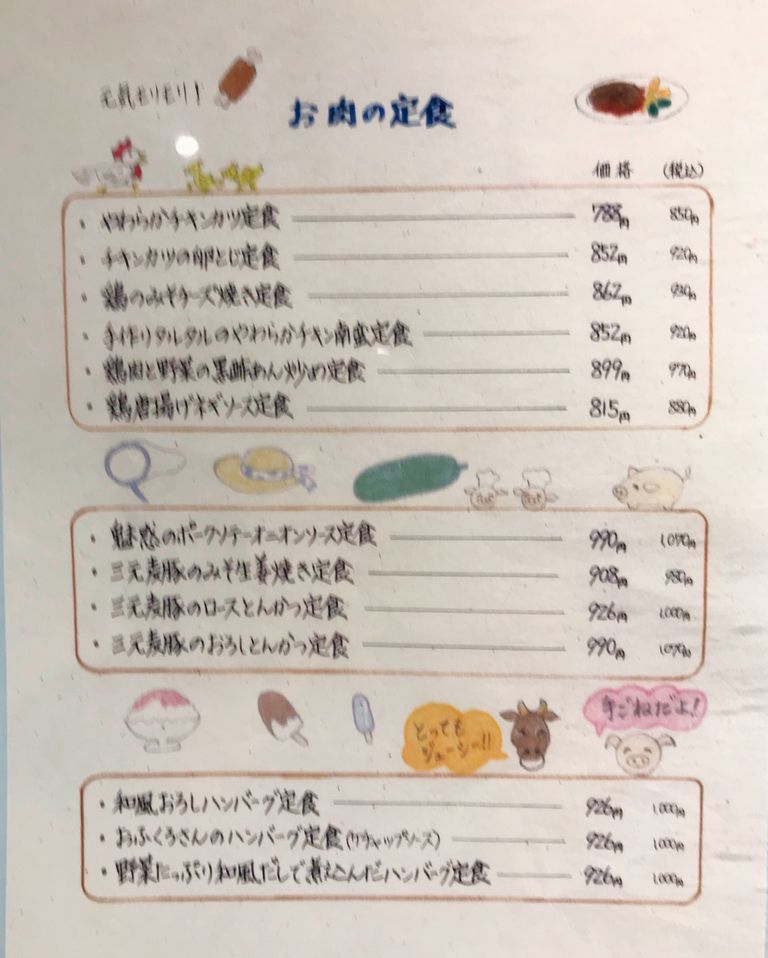 元気モリモリ!
お肉の定食
価格 (税込)
・やわらかチキンカツ定食 788円 850円
・チキンカツの卵とじ定食 852円 920円
・鶏のみそチーズ焼き定食 862円 930円
・手作りタルタルのやわらかチキン南蛮定食 852円 920円
・鶏肉と野菜の黒酢あん炒め定食 899円 970円
・鶏唐揚げネギソース定食 815円 880円
・魅惑のポークソテーオニオンソース定食 990円 1,070円
・三元麦豚のみそ生姜焼き定食 908円 980円
・三元麦豚のロースとんかつ定食 926円 1,000円
・三元麦豚のおろしとんかつ定食 990円 1,070円
とっても
ジューシー!!
手ごねだよ!
・和風おろしハンバーグ定食 926円 1,000円
・おふくろさんのハンバーグ定食(ケチャップソース) 926円 1,000円
・野菜たっぷり和風だしで煮込こんだハンバーグ定食 926円 1,000円